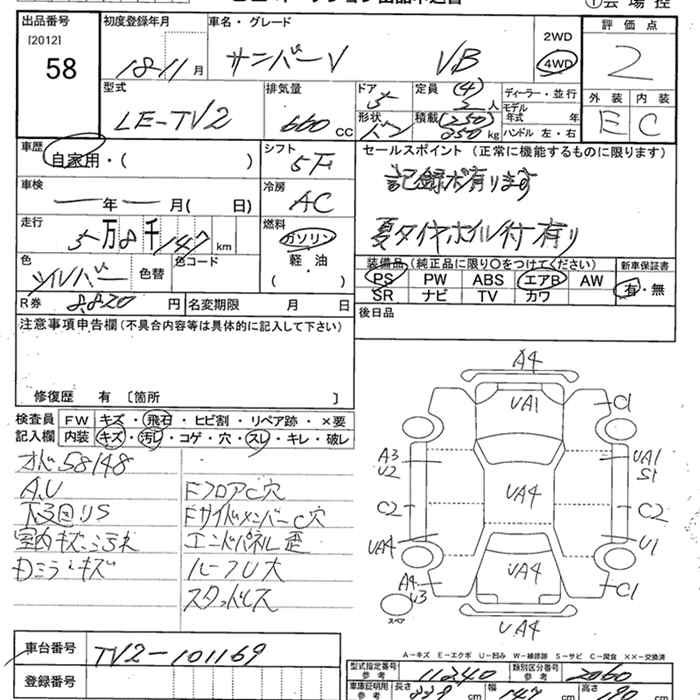 出品番号
[2012]
58
初度登録年月
18-11 月
車名・グレード
サンバーV VB
2WD
4WD
評 価 点
2
外 装 内 装
E C
型式
LE-TV2
排気量
660 CC
ドア
5
形状
バン
定員 (4)
2 人
積載 (250)
350 kg
ディーラー・並行
モデル
年式 年
ハンドル 左・右
車歴
自家用・( )
シフト
5F
セールスポイント (正常に機能するものに限ります)
記録ボ有ります
夏タイヤホイル付有り
車検
年 月( 日)
冷房
AC
走行
5万8千147 km
燃料
ガソリン
軽・油
( )
色
シルバー
色替
色コード
装備品 (純正品に限り○をつけてください)
PS PW ABS エアB AW
SR ナビ TV カワ
新車保証書
有・無
R券 8,820 円
名変期限 月 日
後日品
注意事項申告欄(不具合内容等は具体的に記入して下さい)
修復歴 有 〔箇所 〕
検査員
記入欄
FW キズ・飛石・ヒビ割・リペア跡・×要
内装 キズ・汚レ・コゲ・穴・スレ・キレ・破レ
オドメ58148
A,U
下回りS
室内キズ汚れ
FフロアC穴
FサイドメンバーC穴
エンドパネル歪
ルーフU大
スタッドレス
A4
UA1
C1
A3
U2
UA1
S1
UA4
C2
C2
UA4
U1
UA4
A4
U3
C1
スペア
UA4
A-キズ E-エクボ U-凹み W-補修跡 S-サビ C-腐食 ××-交換済
車台番号
TV2-101169
登録番号
型式指定番号
参考
11240
類別区分番号
参考
2060
車庫証明用
参考
長さ
cm
幅
148 cm
高さ
cm